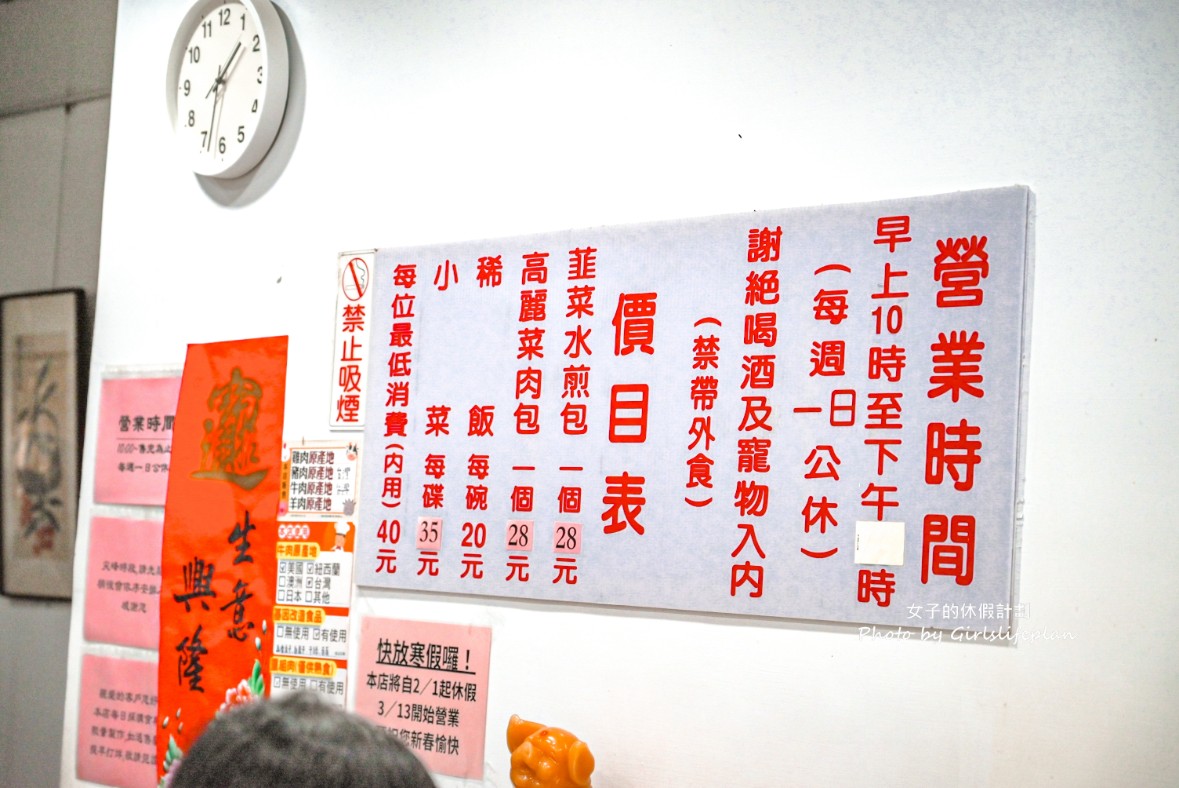 營業時間
早上10時至下午 時
(每週一日公休)
謝絕喝酒及寵物入內
(禁帶外食)
價目表
韮菜水煎包一個28元
高麗菜肉包一個28元
稀飯每碗20元
小菜每碟35元
每位最低消費(內用)40元
禁止吸煙
12
1
2
3
4
5
6
7
8
9
10
11
生意
興隆
營業時間
每週一日公休
雞肉原產地
豬肉原產地
牛肉原產地
羊肉原產地
牛肉原產地
美國 紐西蘭
澳洲 台灣
日本 其他
基因改造食品
無使用 有使用
無使用 有使用
快放寒假囉！
本店將自2/1起休假
3/13開始營業
您新春愉快
女子的休假計劃
Photo by Girlslifeplan